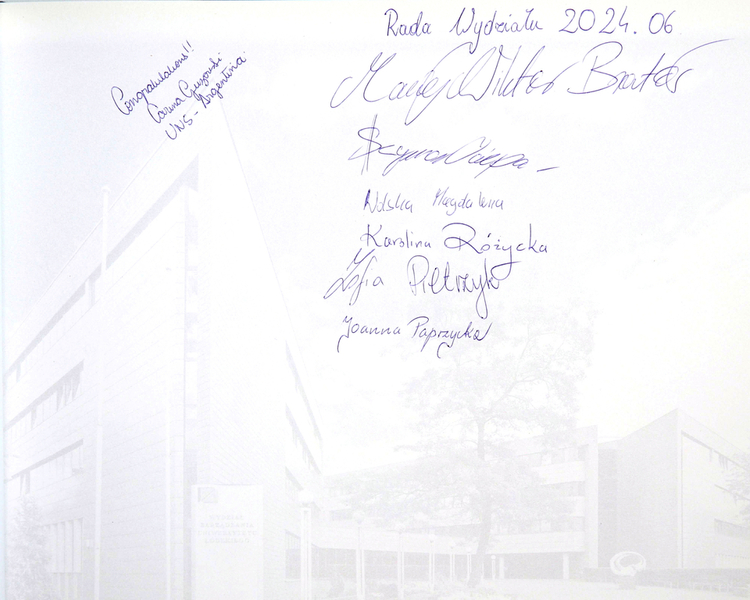 Congratulations!!
Carina
UNS - Argentina
Rada Wydziału 2024.06
Maciej Wiktor
Wilska Magdalena
Karolina Różycka
Zofia Pietrzyk
Joanna Paprzycka